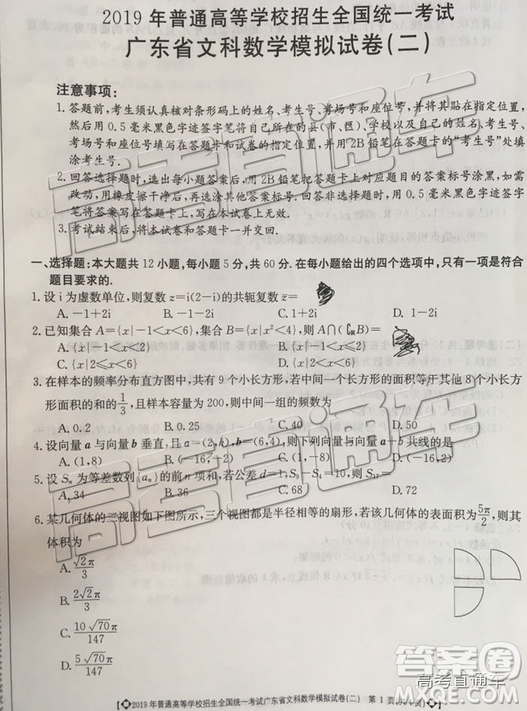 2019年普通高等学校招生全国统一考试
广东省文科数学模拟试卷(二)
注意事项:
1.答题前,考生须认真核对条形码上的姓名、考生号、考场号和座位号,并将其贴在指定位置,
然后用0.5毫米黑色字迹签字笔将自己所在的县(市、区)、学校以及自己的姓名、考生
号、考场号和座位号填写在答题卡和试卷的指定位置,并用2B铅笔在答题卡的“考生号”处填
涂考生号.
2.回答选择题时,选出每小题答案后,用2B铅笔把答题卡上对应题目的答案标号涂黑,如需
改动,用橡皮擦干净后,再选涂其他答案标号.回答非选择题时,用0.5毫米黑色字迹签字
笔将答案写在答题卡上.写在本试卷上无效.
3.考试结束后,将本试卷和答题卡一并交回.
一、选择题:本大题共12小题,每小题5分,共60分.在每小题给出的四个选项中,只有一项是符合
题目要求的.
1.设i为虚数单位,则复数z=i(2-i)的共轭复数z̄=
A.-1+2i B.-1-2i C.1+2i D.1-2i
2.已知集合A={x|-1<x<6},集合B={x|x²<4},则A∩(∁RB)=
A.{x|-1<x<2}
C.{x|2≤x<6}
3.在样本的频率分布直方图中,共有9个小长方形,若中间一个长方形的面积等于其他8个小长方
形面积的和的1/3,且样本容量为200,则中间一组的频数为
A.0.2 B.0.25 C.40 D.50
4.设向量a与向量b垂直,且a=(2,k),b=(6,4),则下列向量与向量a+b共线的是
A.(1,8) B.(-16,-2) C.(1,-8) D.(-16,2)
5.设Sn为等差数列{an}的前n项和,若公差d=1,S9-S4=10,则S17=
A.34 B.36 C.68 D.72
6.某几何体的三视图如下图所示,三个视图都是半径相等的扇形,若该几何体的表面积为5π/2,则其
体积为
A.√2π/3
B.2√2π/3
C.10√70π/147
D.5√70π/147
2019年普通高等学校招生全国统一考试广东省文科数学模拟试卷(二) 第1页
高考直通车
高考直通车
高考直通车
答案圈
高考直通车